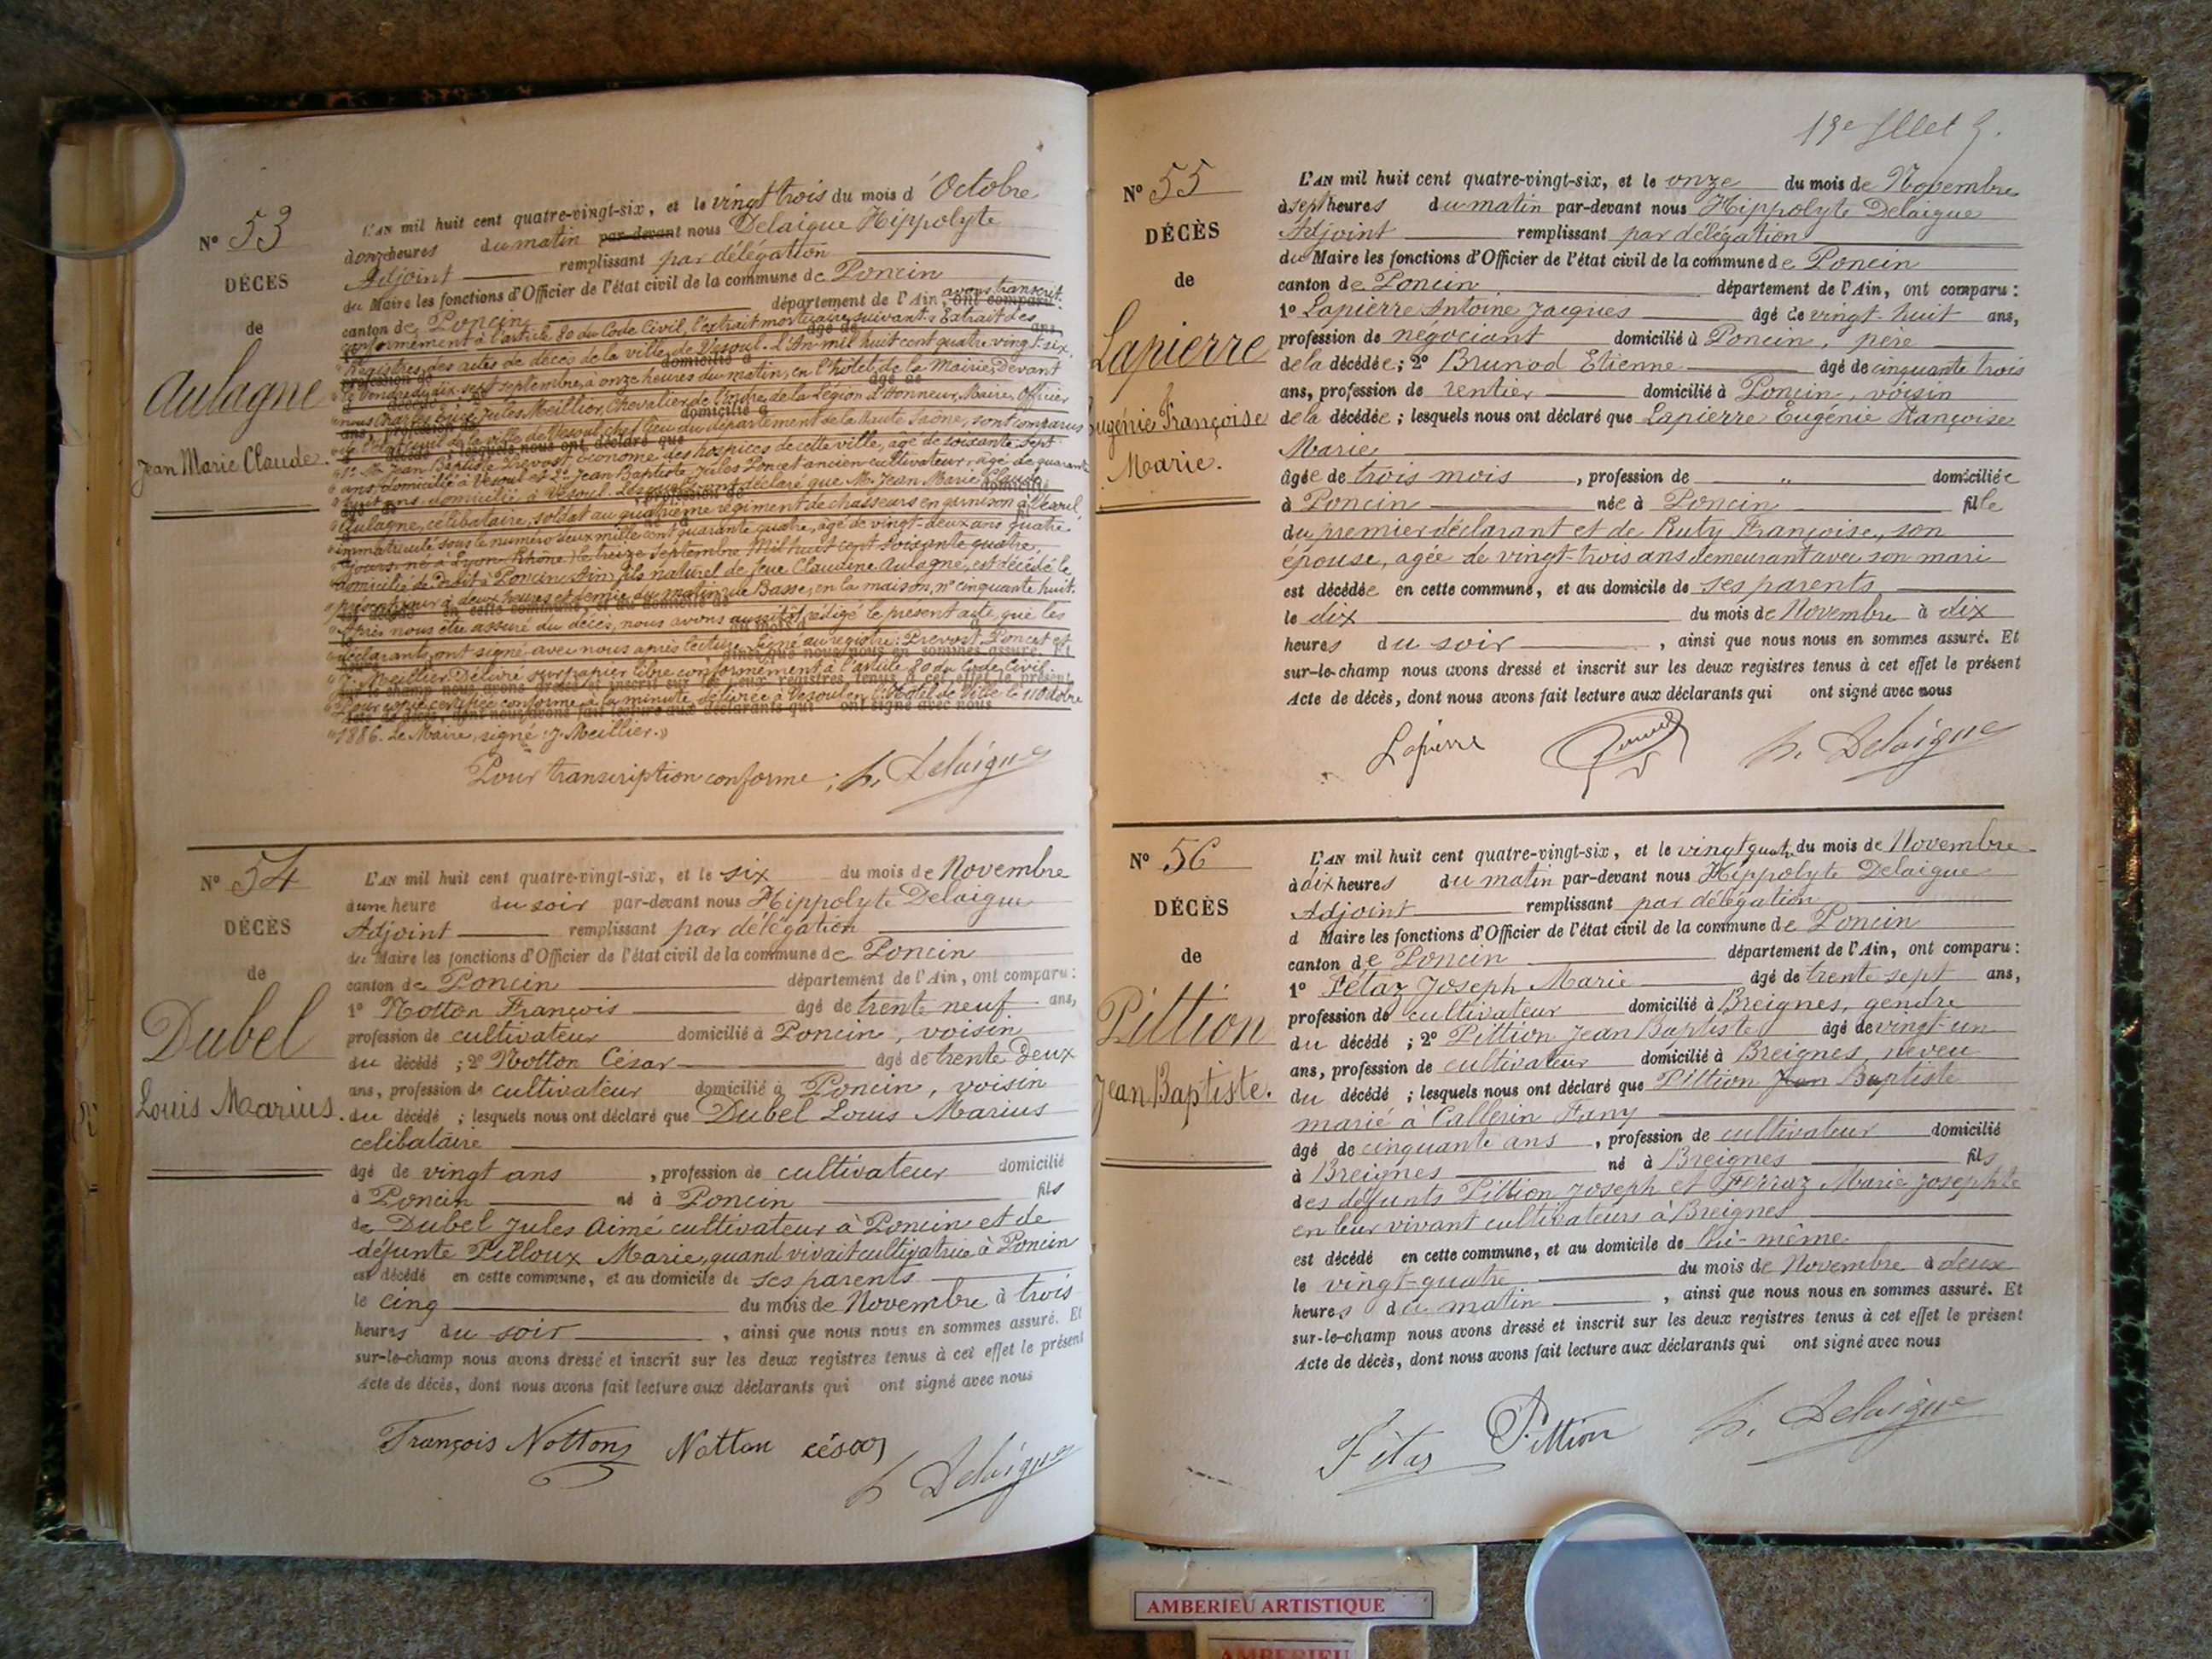 N° 53
DÉCÈS
de
Aulagne
Jean Marie Claude.
L'AN mil huit cent quatre-vingt-six, et le vingt trois du mois d'Octobre
à onze heures du matin par-devant nous Delaigue Hippolyte
Adjoint remplissant par délégation
du Maire les fonctions d'Officier de l'état civil de la commune de Poncin
canton de Poncin département de l'Ain, avons transcrit ont comparu:
conformément à l'article 80 du Code Civil, l'extrait mortuaire suivant: Extrait des
Registres des actes de décès de la ville de Vesoul. L'An mil huit cent quatre vingt six,
le Vendredi dix-sept septembre, à onze heures du matin, en l'hôtel de la Mairie, Devant
nous Jules Meillier, Chevalier de l'ordre de la Légion d'Honneur, Maire, Officier
de l'état civil de la ville de Vesoul, chef lieu du département de la Haute Saône, sont comparus
1° M. Jean Baptiste Prevost, économe des hospices de cette ville, âgé de soixante sept
ans, domicilié à Vesoul et 2° Jean Baptiste Jules Poncet ancien cultivateur, âgé de quarante
huit ans, domicilié à Vesoul. Lesquels ont déclaré que M. Jean Marie Claude
Aulagne, célibataire, soldat au quatrième régiment de chasseurs en garnison à Vesoul,
immatriculé sous le numéro deux mille cent quarante quatre, âgé de vingt-deux ans quatre
jours, né à Lyon (Rhône) le treize Septembre Mil huit cent soixante quatre,
domicilié de Droit à Poncin, Ain, fils naturel de feue Claudine Aulagne, est décédé le
présent jour à deux heures et demie du matin, rue Basse, en la maison, n° cinquante huit.
Après nous être assuré du décès, nous avons aussitôt rédigé le présent acte, que les
déclarants ont signé avec nous après lecture. Signé au registre: Prevost, Poncet et
J. Meillier. Délivré sur papier libre conformément à l'article 80 du Code Civil.
Pour copie certifiée conforme à la minute, délivrée à Vesoul en l'Hôtel de Ville le 11 Octobre
1886. Le Maire, signé: J. Meillier.»
Pour transcription conforme: h. Delaigue
N° 54
DÉCÈS
de
Dubel
Louis Marius.
L'AN mil huit cent quatre-vingt-six, et le six du mois de Novembre
à une heure du soir par-devant nous Hippolyte Delaigue
Adjoint remplissant par délégation
du Maire les fonctions d'Officier de l'état civil de la commune de Poncin
canton de Poncin département de l'Ain, ont comparu:
1° Notton François âgé de trente neuf ans,
profession de cultivateur domicilié à Poncin, voisin
du décédé ; 2° Notton César âgé de trente deux
ans, profession de cultivateur domicilié à Poncin, voisin
du décédé ; lesquels nous ont déclaré que Dubel Louis Marius
célibataire
âgé de vingt ans , profession de cultivateur domicilié
à Poncin né à Poncin fils
de Dubel Jules Aimé cultivateur à Poncin et de
défunte Pilloux Marie, quand vivait cultivatrice à Poncin
est décédé en cette commune, et au domicile de ses parents
le cinq du mois de Novembre à trois
heures du soir , ainsi que nous nous en sommes assuré. Et
sur-le-champ nous avons dressé et inscrit sur les deux registres tenus à cet effet le présent
Acte de décès, dont nous avons fait lecture aux déclarants qui ont signé avec nous
François Notton Notton césar
h Delaigue
N° 55
DÉCÈS
de
Lapierre
Eugénie Françoise
Marie.
L'AN mil huit cent quatre-vingt-six, et le onze du mois de Novembre
à sept heures du matin par-devant nous Hippolyte Delaigue
Adjoint remplissant par délégation
du Maire les fonctions d'Officier de l'état civil de la commune de Poncin
canton de Poncin département de l'Ain, ont comparu:
1° Lapierre Antoine Jacques âgé de vingt-huit ans,
profession de négociant domicilié à Poncin, père
de la décédée; 2° Brunod Etienne âgé de cinquante trois
ans, profession de rentier domicilié à Poncin, voisin
de la décédée; lesquels nous ont déclaré que Lapierre Eugénie Françoise
Marie
âgée de trois mois , profession de " domiciliée
à Poncin née à Poncin fille
du premier déclarant et de Ruty Françoise, son
épouse, agée de vingt-trois ans demeurant avec son mari
est décédée en cette commune, et au domicile de ses parents
le dix du mois de Novembre à dix
heures du soir , ainsi que nous nous en sommes assuré. Et
sur-le-champ nous avons dressé et inscrit sur les deux registres tenus à cet effet le présent
Acte de décès, dont nous avons fait lecture aux déclarants qui ont signé avec nous
Lapierre h. Delaigue
N° 56
DÉCÈS
de
Pittion
Jean Baptiste.
L'AN mil huit cent quatre-vingt-six, et le vingt quatre du mois de Novembre
à dix heures du matin par-devant nous Hippolyte Delaigue
Adjoint remplissant par délégation
d Maire les fonctions d'Officier de l'état civil de la commune de Poncin
canton de Poncin département de l'Ain, ont comparu:
1° Fétaz Joseph Marie âgé de trente sept ans,
profession de cultivateur domicilié à Breignes, gendre
du décédé ; 2° Pittion Jean Baptiste âgé de vingt-un
ans, profession de cultivateur domicilié à Breignes, neveu
du décédé ; lesquels nous ont déclaré que Pittion Jean Baptiste
marié à Callerin Fany
âgé de cinquante ans , profession de cultivateur domicilié
à Breignes né à Breignes fils
des défunts Pittion Joseph et Ferraz Marie Josephte
en leur vivant cultivateurs à Breignes
est décédé en cette commune, et au domicile de lui-même
le vingt-quatre du mois de Novembre à deux
heures du matin , ainsi que nous nous en sommes assuré. Et
sur-le-champ nous avons dressé et inscrit sur les deux registres tenus à cet effet le présent
Acte de décès, dont nous avons fait lecture aux déclarants qui ont signé avec nous
Fétas Pittion h. Delaigue
AMBERIEU ARTISTIQUE
AMBERIEU